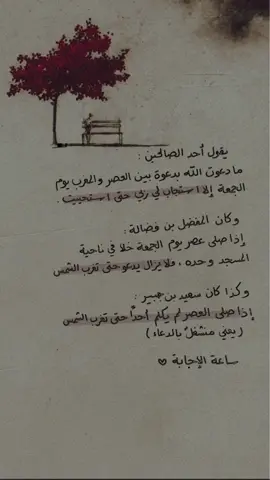 يقول أحد الصالحين :
ما دعوت الله بدعوة بين العصر والمغرب يوم
الجمعة إلا استجاب لي ربي حتى استحييت .
وكان المفضل بن فضالة :
إذا صلى عصر يوم الجمعة خلا في ناحية
المسجد وحده ، ولا يزال يدعو حتى تغرب الشمس
وكذا كان سعيد بن جبير :
إذا صلى العصر لم يكلم أحداً حتى تغرب الشمس
( يعني منشغلٌ بالدعاء )
ساعة الإجابة ♡